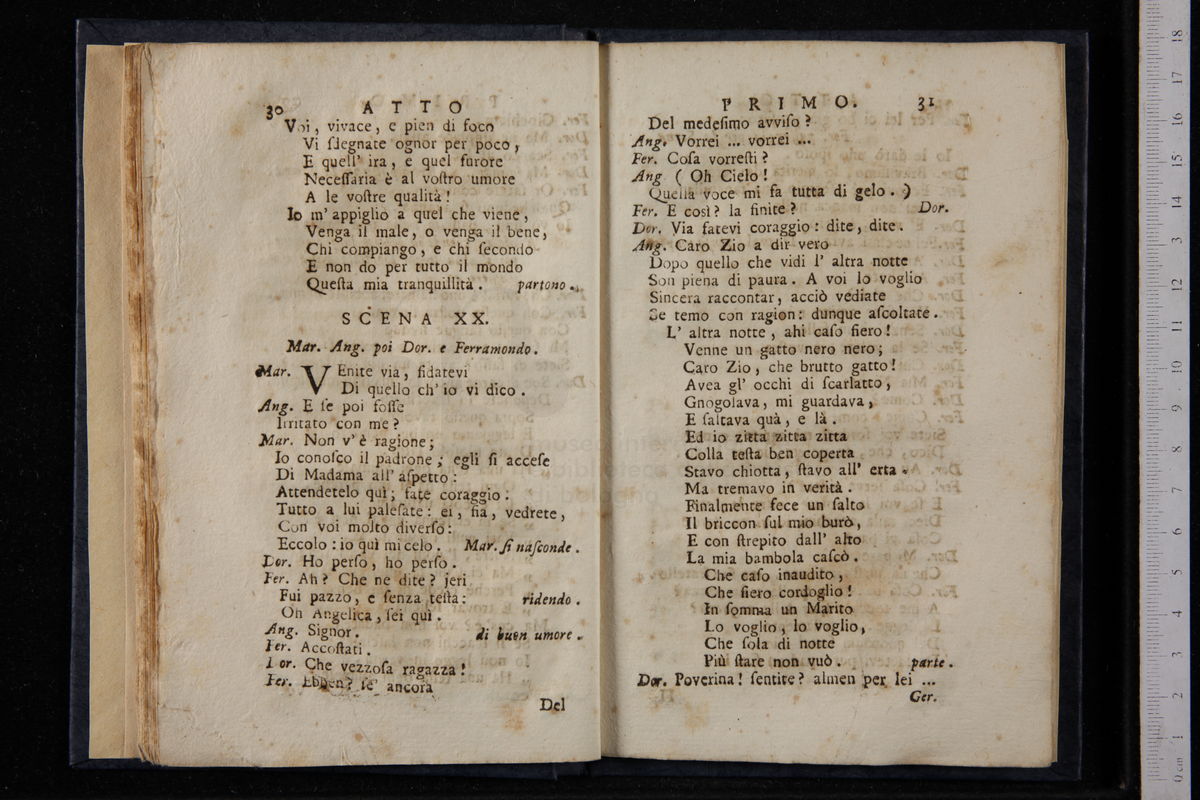 30 ATTO
Voi, vivace, e pien di foco
Vi sdegnate ognor per poco,
E quell' ira, e quel furore
Necessaria è al vostro umore
A le vostre qualità!
Io m' appiglio a quel che viene,
Venga il male, o venga il bene,
Chi compiango, e chi secondo
E non do per tutto il mondo
Questa mia tranquillità. partono.
SCENA XX.
Mar. Ang. poi Dor. e Ferramondo.
Mar. VEnite via, fidatevi
Di quello ch' io vi dico.
Ang. E se poi fosse
Irritato con me?
Mar. Non v' è ragione;
Io conosco il padrone; egli si accese
Di Madama all' aspetto:
Attendetelo quì; fate coraggio:
Tutto a lui palesate: ei, sia, vedrete,
Con voi molto diverso:
Eccolo: io quì mi celo. Mar. si nasconde.
Dor. Ho perso, ho perso.
Fer. Ah? Che ne dite? jeri
Fui pazzo, e senza testa: ridendo.
Oh Angelica, sei quì.
Ang. Signor. di buon umore.
Fer. Accostati.
Dor. Che vezzosa ragazza!
Fer. Ebben? se' ancora
Del
PRIMO. 31
Del medesimo avviso?
Ang. Vorrei ... vorrei ...
Fer. Cosa vorresti?
Ang ( Oh Cielo!
Quella voce mi fa tutta di gelo. )
Fer. E così? la finite? Dor.
Dor. Via fatevi coraggio: dite, dite.
Ang. Caro Zio a dir vero
Dopo quello che vidi l' altra notte
Son piena di paura. A voi lo voglio
Sincera raccontar, acciò vediate
Se temo con ragion: dunque ascoltate.
L' altra notte, ahi caso fiero!
Venne un gatto nero nero;
Caro Zio, che brutto gatto!
Avea gl' occhi di scarlatto,
Gnogolava, mi guardava,
E saltava quà, e là.
Ed io zitta zitta zitta
Colla testa ben coperta
Stavo chiotta, stavo all' erta.
Ma tremavo in verità.
Finalmente fece un salto
Il briccon sul mio burò,
E con strepito dall' alto
La mia bambola cascò.
Che caso inaudito,
Che fiero cordoglio!
In somma un Marito
Lo voglio, lo voglio,
Che sola di notte
Più stare non vuò. parte.
Dor. Poverina! sentite? almen per lei ...
Ger.